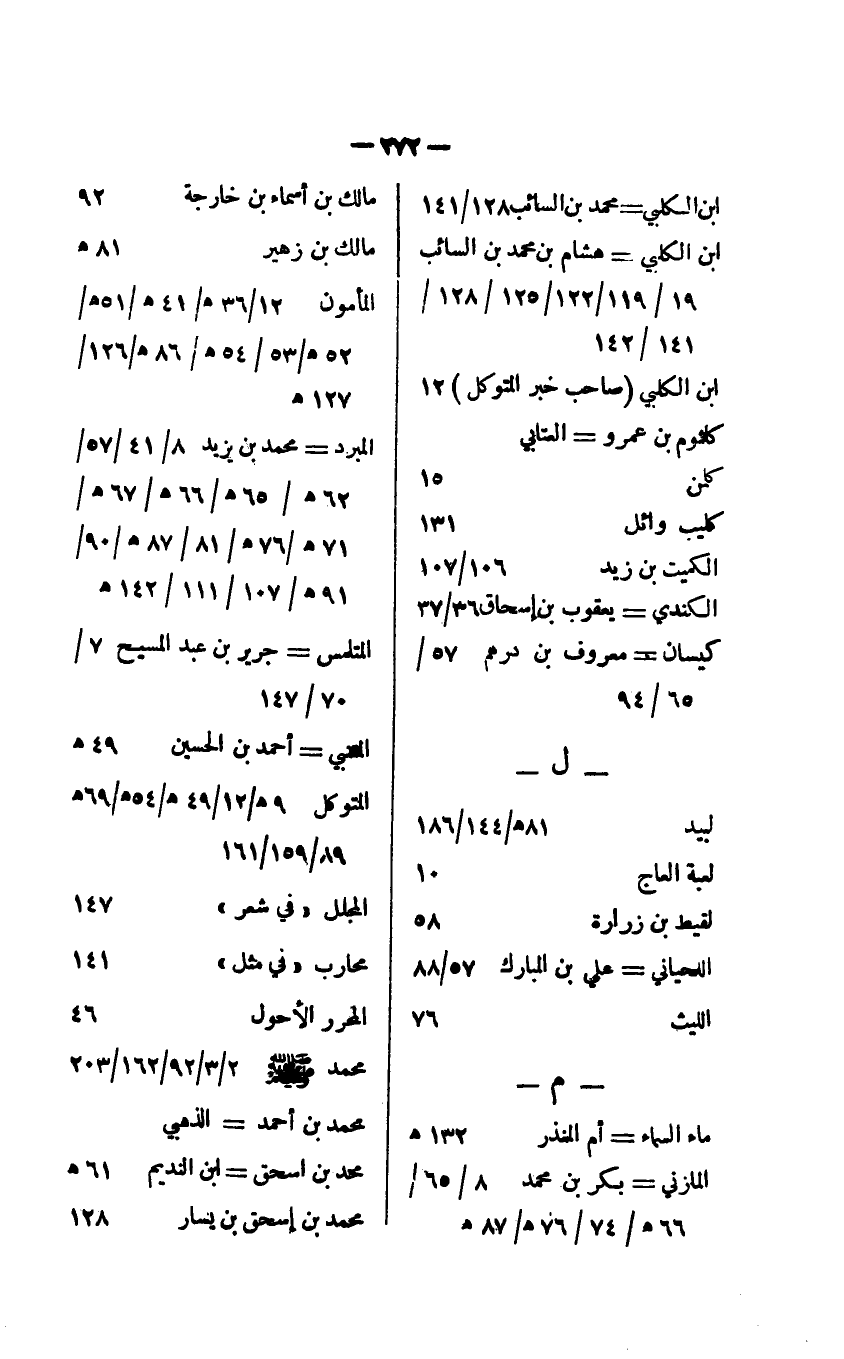 — ٢٧٢ —
ابن الكلبي = محمد بن السائب ١٢٨/١٤١
ابن الكلبي = هشام بن محمد بن السائب
١٩ / ١١٩/ ١٢٢/ ١٢٥ / ١٢٨ /
١٤١ / ١٤٢
ابن الكلبي (صاحب خبر المتوكل) ١٢
كلثوم بن عمرو = العتابي
كلمن ١٥
كليب وائل ١٣١
الكميت بن زيد ١٠٦/١٠٧
الكندي = يعقوب بن إسحاق ٣٦/٣٧
كيسان = معروف بن درهم ٥٧ /
٦٥ / ٩٤
— ل —
لبيد ٨١ه/ ١٤٤/ ١٨٦
لعبة العاج ١٠
لقيط بن زرارة ٥٨
اللحياني = علي بن المبارك ٥٧/ ٨٨
الليث ٧٦
— م —
ماء السماء = أم المنذر ١٣٢ ه
المازني = بكر بن محمد ٨ / ٦٥ /
٦٦ ه / ٧٤ / ٧٦ ه/ ٨٧ ه
مالك بن أسماء بن خارجة ٩٢
مالك بن زهير ٨١ ه
المأمون ١٢/ ٣٦ ه/ ٤١ ه / ٥١ه/
٥٢ ه/ ٥٣ / ٥٤ ه / ٨٦ ه/١٢٦/
١٢٧ ه
المبرد = محمد بن يزيد ٨/ ٤١ /٥٧/
٦٢ ه / ٦٥ ه/ ٦٦ ه / ٦٧ ه /
٧١ ه /٧٦ ه / ٨١ / ٨٧ ه /٩٠/
٩١ ه / ١٠٧ / ١١١ / ١٤٢ ه
المتلمس = جرير بن عبد المسيح ٧ /
٧٠ / ١٤٧
المتنبي = أحمد بن الحسين ٤٩ ه
المتوكل ٩ ه/١٢/ ٤٩ ه/٥٤ه/٦٩ه
٨٩/ ١٥٩/ ١٦١
المجلل « في شعر » ١٤٧
محارب « في مثل » ١٤١
المحرر الأحول ٤٦
محمد ﷺ ٢/ ٣/ ٩٢/ ١٦٢/ ٢٠٣
محمد بن أحمد = الذهبي
محمد بن اسحق = ابن النديم ٦١ ه
محمد بن إسحق بن يسار ١٢٨